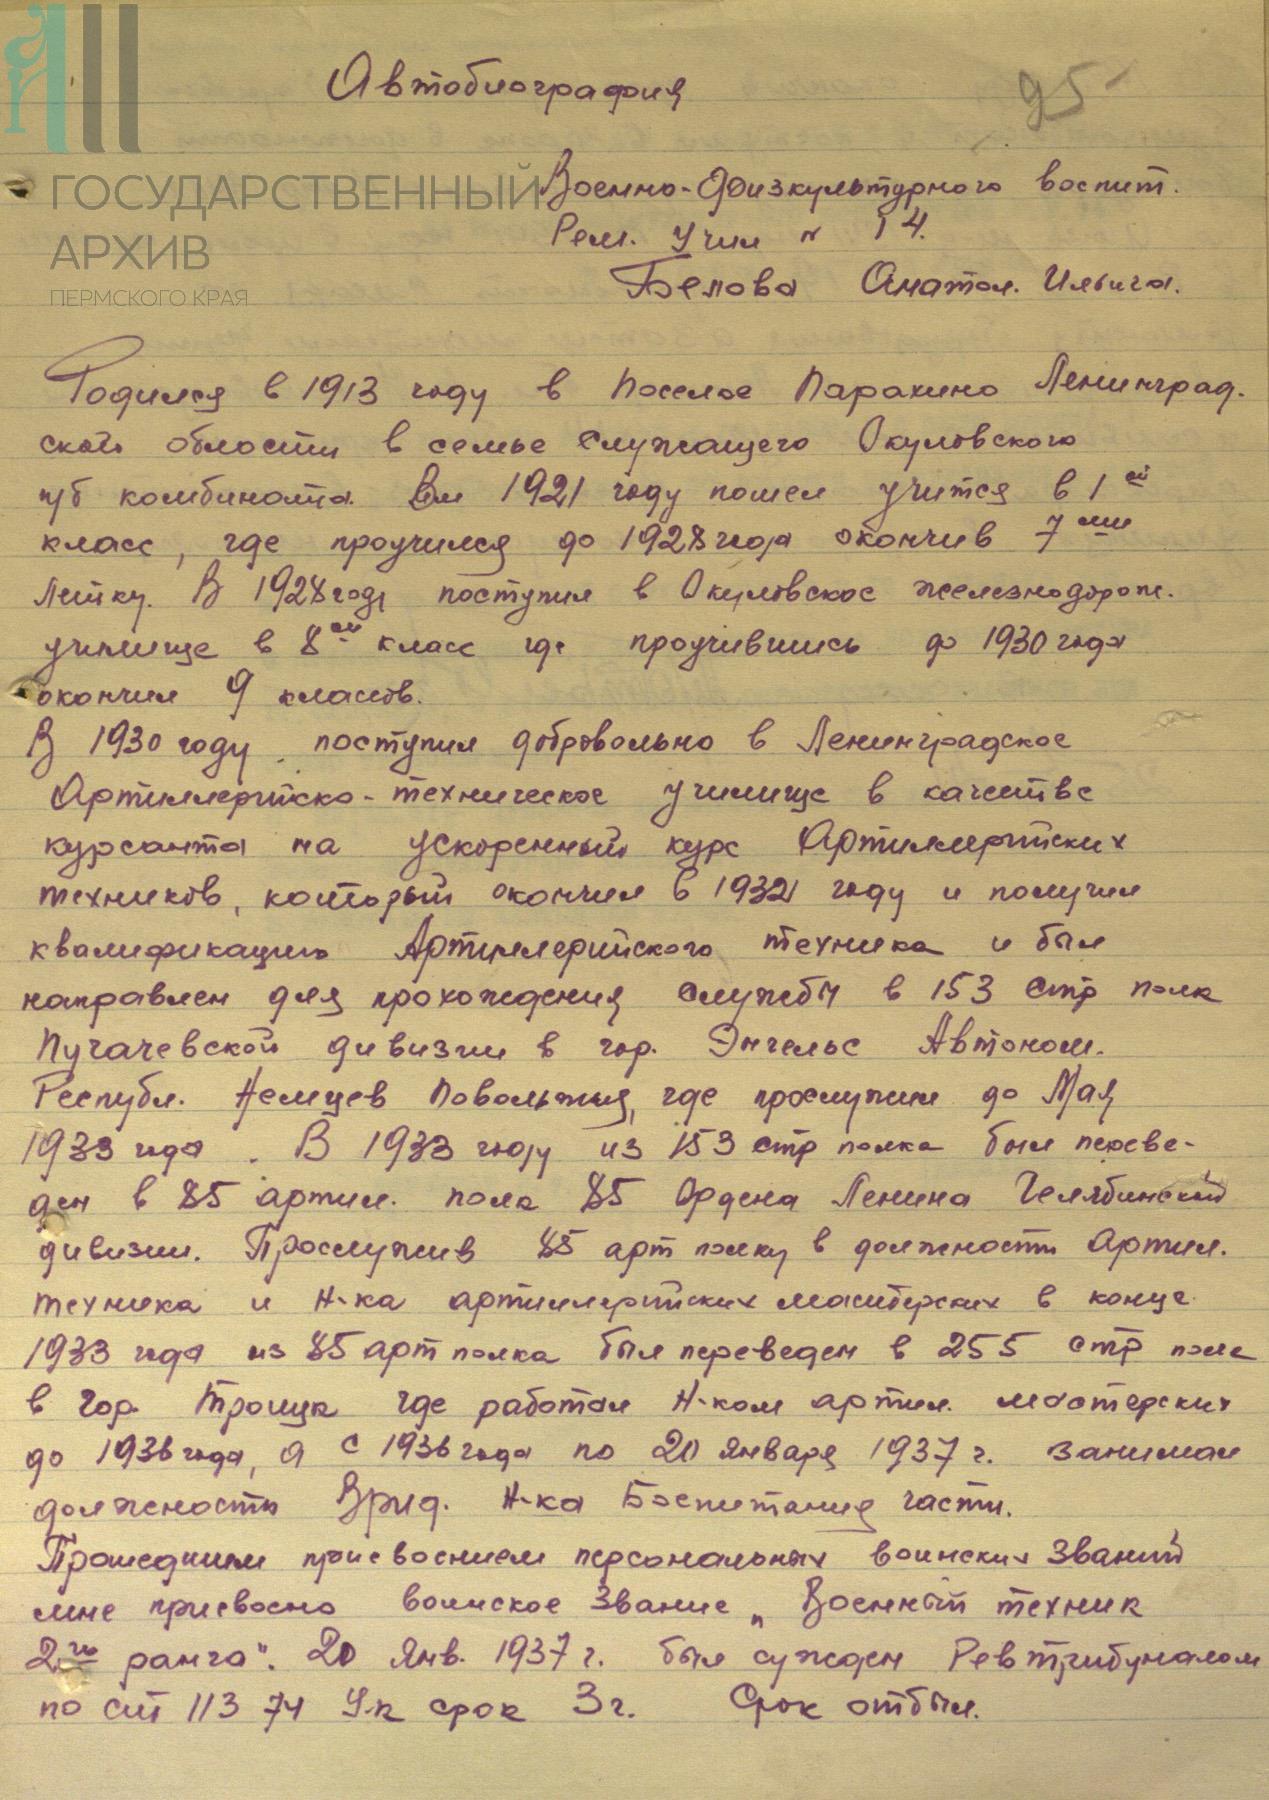 Автобиография
95
ГОСУДАРСТВЕННЫЙ
АРХИВ
ПЕРМСКОГО КРАЯ
Военно-физкультурного воспит.
Рем. Учил № 14.
Белова Анатол. Ильича.
Родился в 1913 году в поселке Паракино Ленинград.
ской области в семье служащего Окуловского
ц/б комбината. В 1921 году пошел учится в 1 ый
класс, где проучился до 1928 года окончив 7 ми
летку. В 1928 году поступил в Окуловское железнодорож.
училище в 8 ой класс где проучившись до 1930 года
окончил 9 классов.
В 1930 году поступил добровольно в Ленинградское
Артиллерийско-техническое училище в качестве
курсанта на ускоренный курс Артиллерийских
техников, который окончил в 1932 году и получил
квалификацию Артиллерийского техника и был
направлен для прохождения службы в 153 стр полк
Пугачевской дивизии в гор. Энгельс Автоном.
Республ. Немцев Поволжья, где прослужил до Мая
1933 года. В 1933 году из 153 стр полка был переве-
ден в 85 артил. полк 85 Ордена Ленина Челябинской
дивизии. Прослужив 85 арт полку в должности Артил.
техника и н-ка артиллерийских мастерских в конце
1933 года из 85 арт полка был переведен в 255 стр полк
в гор. Троицк где работал н-ком артил. мастерских
до 1936 года, а с 1936 года по 20 января 1937 г. занимал
должность Врид. н-ка Боепитания части.
Прошедшим присвоением персональных воинских званий
мне присвоено воинское звание „Военный техник
2го ранга". 20 янв. 1937 г. был сужден Ревтрибуналом
по ст 113 74 У.к срок 3 г. Срок отбыл.